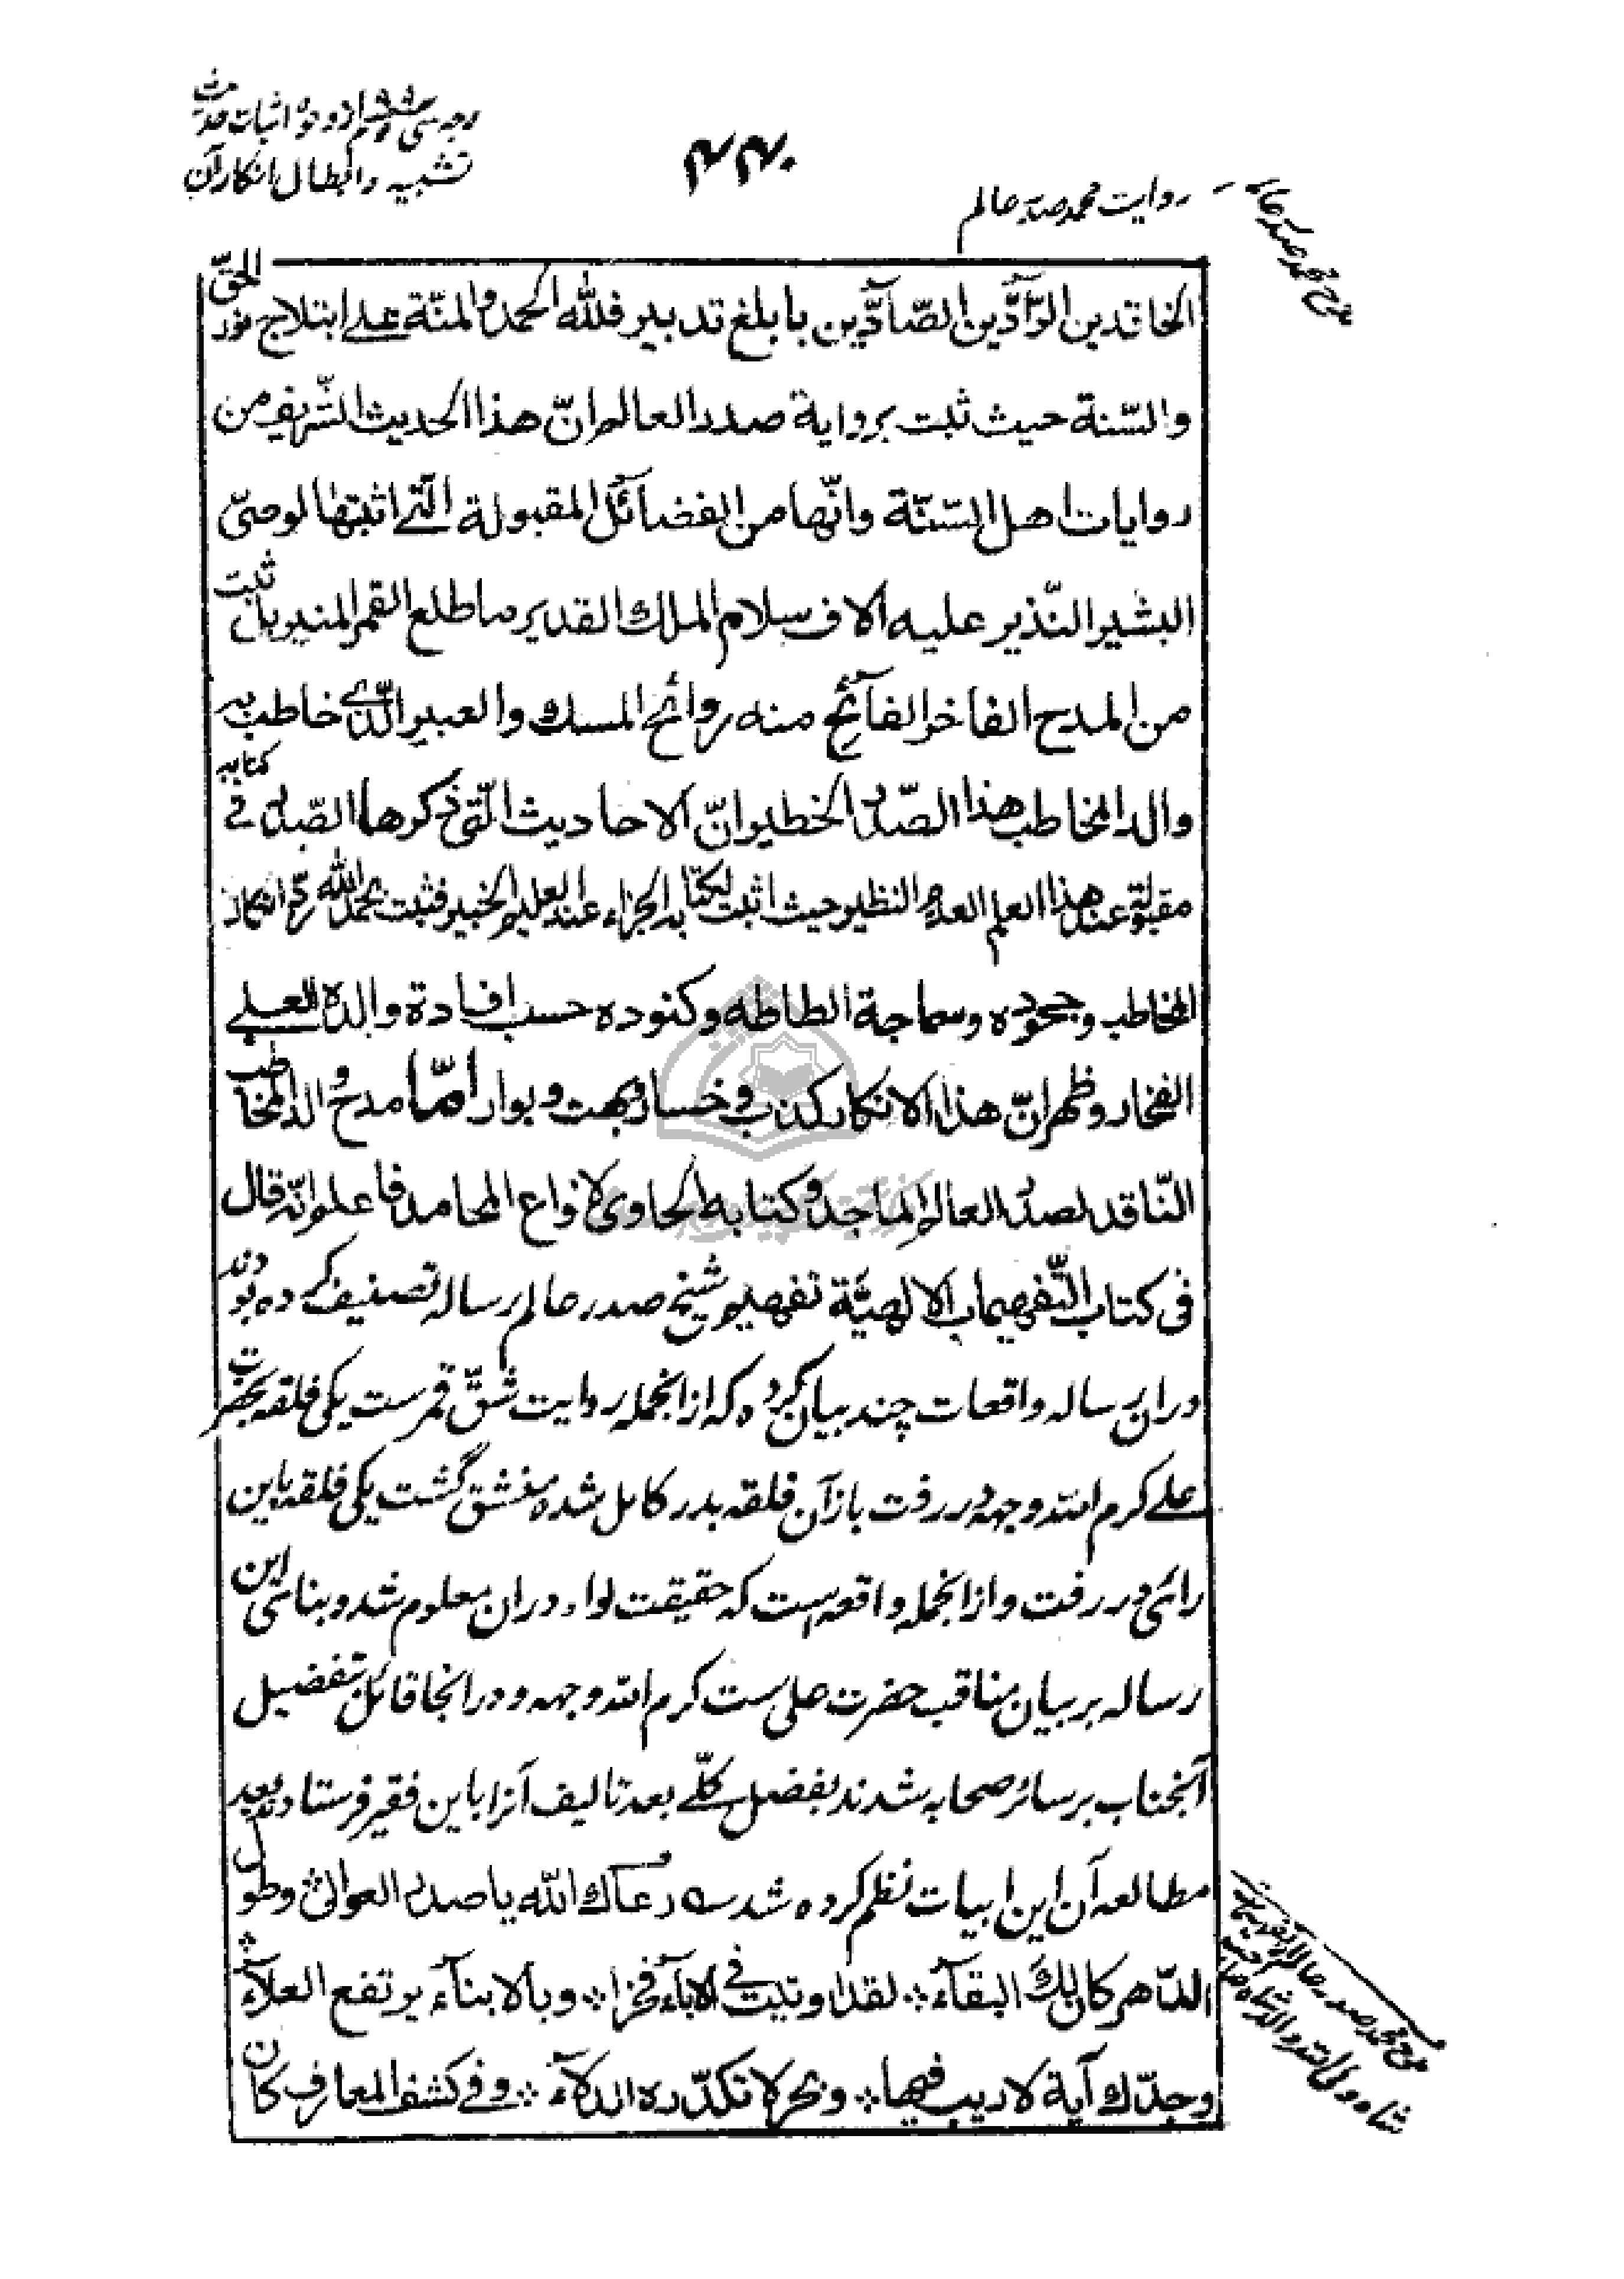 وجه سی و نهم از وجوه اثبات حدیث
تشبیه و ابطال انکار آن
۴۴۰
روایت محمد صدر عالم
مدح محمد صدر عالم
الخاقدین الرّآدّین الصّآدّین بابلغ تدبیر فللّه الحمد و المنّة علی ابتلاج نور الحقّ
والسّنة حیث ثبت بروایة صدر العالم انّ هذا الحدیث الشّریف من
روایات اهل السّنّة وانّها من الفضآئل المقبولة الّتی اثبتها لوصیّ
البشیر النّذیر علیه آلاف سلام الملك القدیر ما طلع القمر المنیر بل ثبت
من المدح الفاخر الفآئح منه روائح المسك والعبیر الّذی خاطب به
والد المخاطب هذا الصّدر الخطیر انّ الاحادیث الّتی ذکرها الصّدر فی کتابه
مقبولة عند هذا العلم العدیم النظیر حیث اثبت لکتابه الجزاء عند العلیم الخبیر فثبت بحمد اللّه انکار
المخاطب وجحوده وسماجة الطاطه وکنوده حسب افادة والده العلی
الفخار وظهر انّ هذا الانکار کذب و خسار وبهت وبوار امّا مدح والد المخاطب
النّاقد لصدر العالم الماجد وکتابه الحاوی لانواع المحامد فاعلم انّه قال
فی کتاب التّفهیمات الالهیّة تفهیم شیخ صدر عالم رساله تصنیف کرده بودند
دران رساله واقعات چند بیان کرده که از انجمله روایت شقّ قمرست یکی فلقه بحضرت
علی کرم الله وجهه در رفت باز آن فلقه بدر کامل شده منشق گشت یکی فلقه باین
رائی در رفت و از انجمله واقعه‌است که حقیقت لواء دران معلوم شد و بنای این
رساله بر بیان مناقب حضرت علی ست کرم الله وجهه و در انجا قائل بتفضیل
آنجناب بر سائر صحابه شدند بفضل کلّی بعد تالیف آنرا باین فقیر فرستادند بعد
مطالعه آن این ابیات نظم کرده شد رعاك اللّه یا صدر العوالی * وطول
الدّهر کان لك البقآء * لقد اوتیت فی الآبآء فخرا * وبالابنآء یرتفع العلآء *
وجدّك آیة لا ریب فیها * وبحر لا تکدّره الدلآء * وفی کشف المعارف کان
مدح محمد صدر عالم
شاه ولی الله والد شاه صاحب